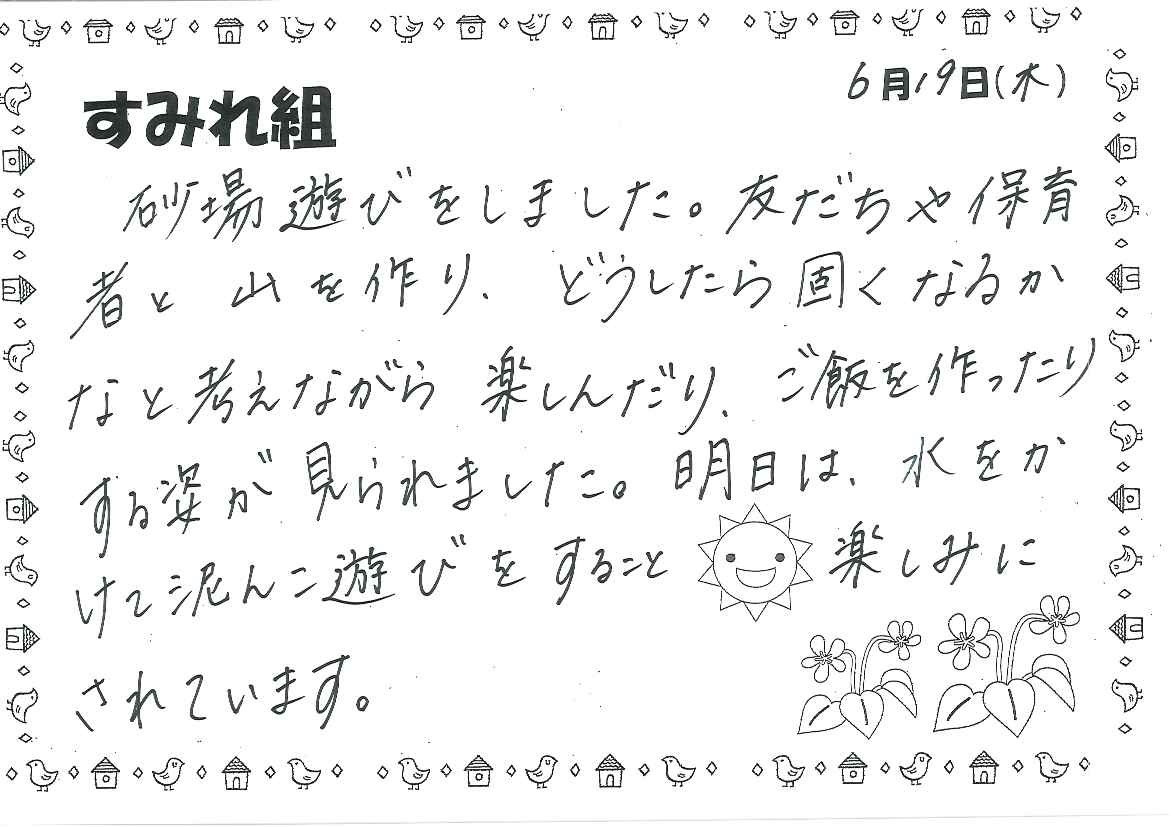 6月19日(木)
すみれ組
砂場遊びをしました。友だちや保育
者と山を作り、どうしたら固くなるか
なと考えながら楽しんだり、ご飯を作ったり
する姿が見られました。明日は、水をか
けて泥んこ遊びをすること楽しみに
されています。